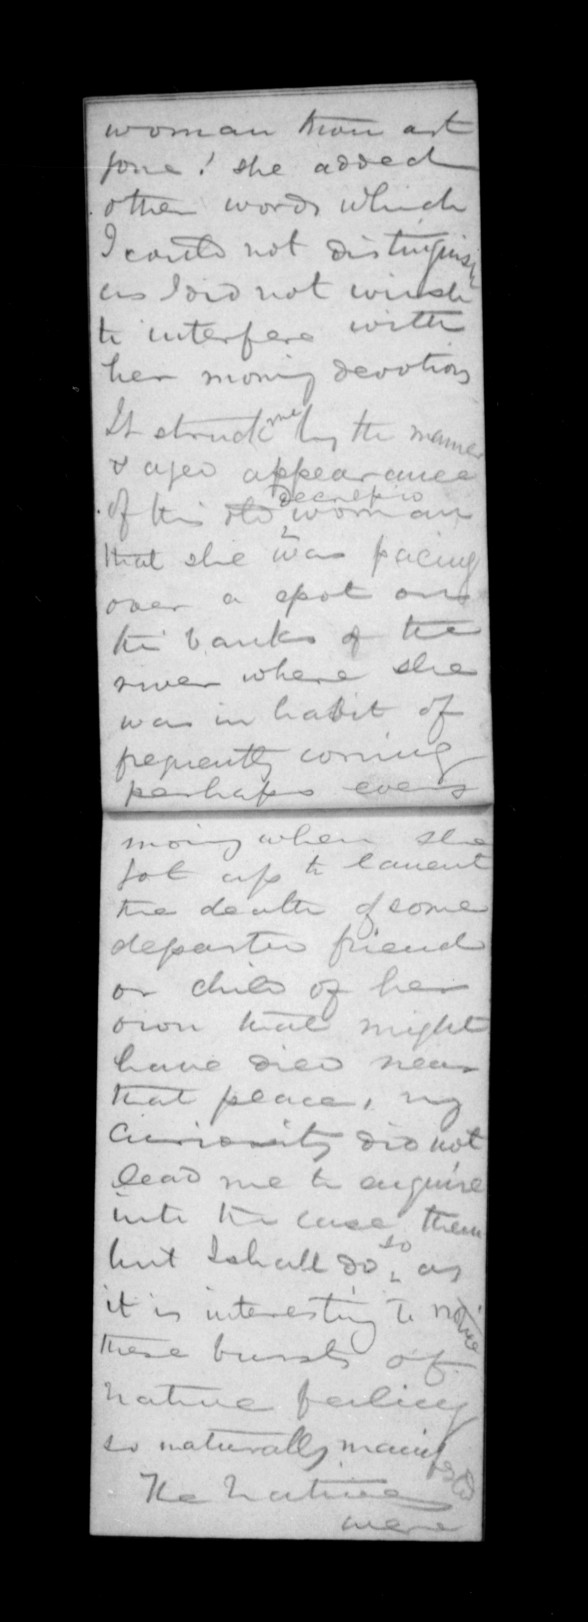 woman thou art
gone! she added
other words which
I could not distinguish
as I did not wish
to interfere with
her morning devotions
It struck me by the manner
& aged appearance
of this old decrepid woman
that she was pacing
over a spot on
the banks of the
river where she
was in habit of
frequently coming
perhaps every
morning when she
got up to lament
the death of some
departed friend
or child of her
own that might
have died near
that place, my
curiosity did not
lead me to enquire
into the case then
but I shall do so as
it is interesting to notice
these bursts of
native feeling
so naturally manifested
The Natives
were